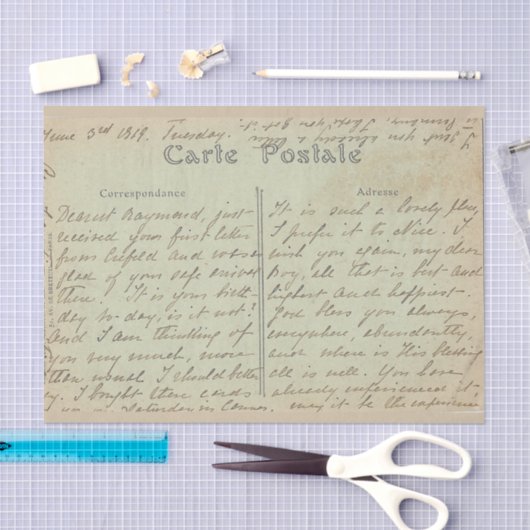 June 3rd 1919. Tuesday.
Carte Postale
Correspondance
Adresse
Dearest Raymond, just
received your first letter
from Crefeld and was so
glad of your safe arrival
there. It is your birth-
day to-day, is it not?
And I am thinking of
you very much, more
than usual. I should better
I bought these cards
Saturday in Cannes.
It is such a lovely place,
I prefer it to Nice. I
wish you again, my dear
boy, all that is best and
highest and happiest.
God bless you always,
everywhere, abundantly,
and where is His blessing
all is well. You have
already experienced it,
may it be the experience